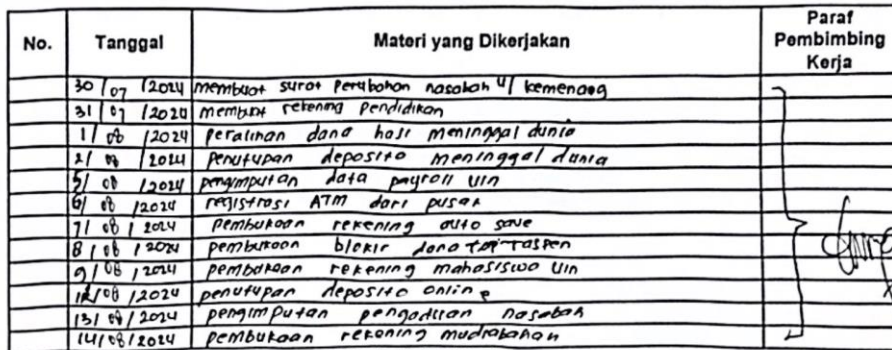 No. Tanggal Materi yang Dikerjakan Paraf Pembimbing Kerja
30/07/2024 membuat surat perubahan nasabah u/ kemenag
31/07/2024 membuat rekening pendidikan
1/08/2024 peralihan dana haji meninggal dunia
2/08/2024 penutupan deposito meninggal dunia
5/08/2024 pengimputan data payroll uin
6/08/2024 registrasi ATM dari pusat
7/08/2024 pembukaan rekening auto save
8/08/2024 pembukaan blokir dana taspen
9/08/2024 pembukaan rekening mahasiswa uin
12/08/2024 penutupan deposito online
13/08/2024 pengimputan nasabah
14/08/2024 pembukaan rekening mudrabahan